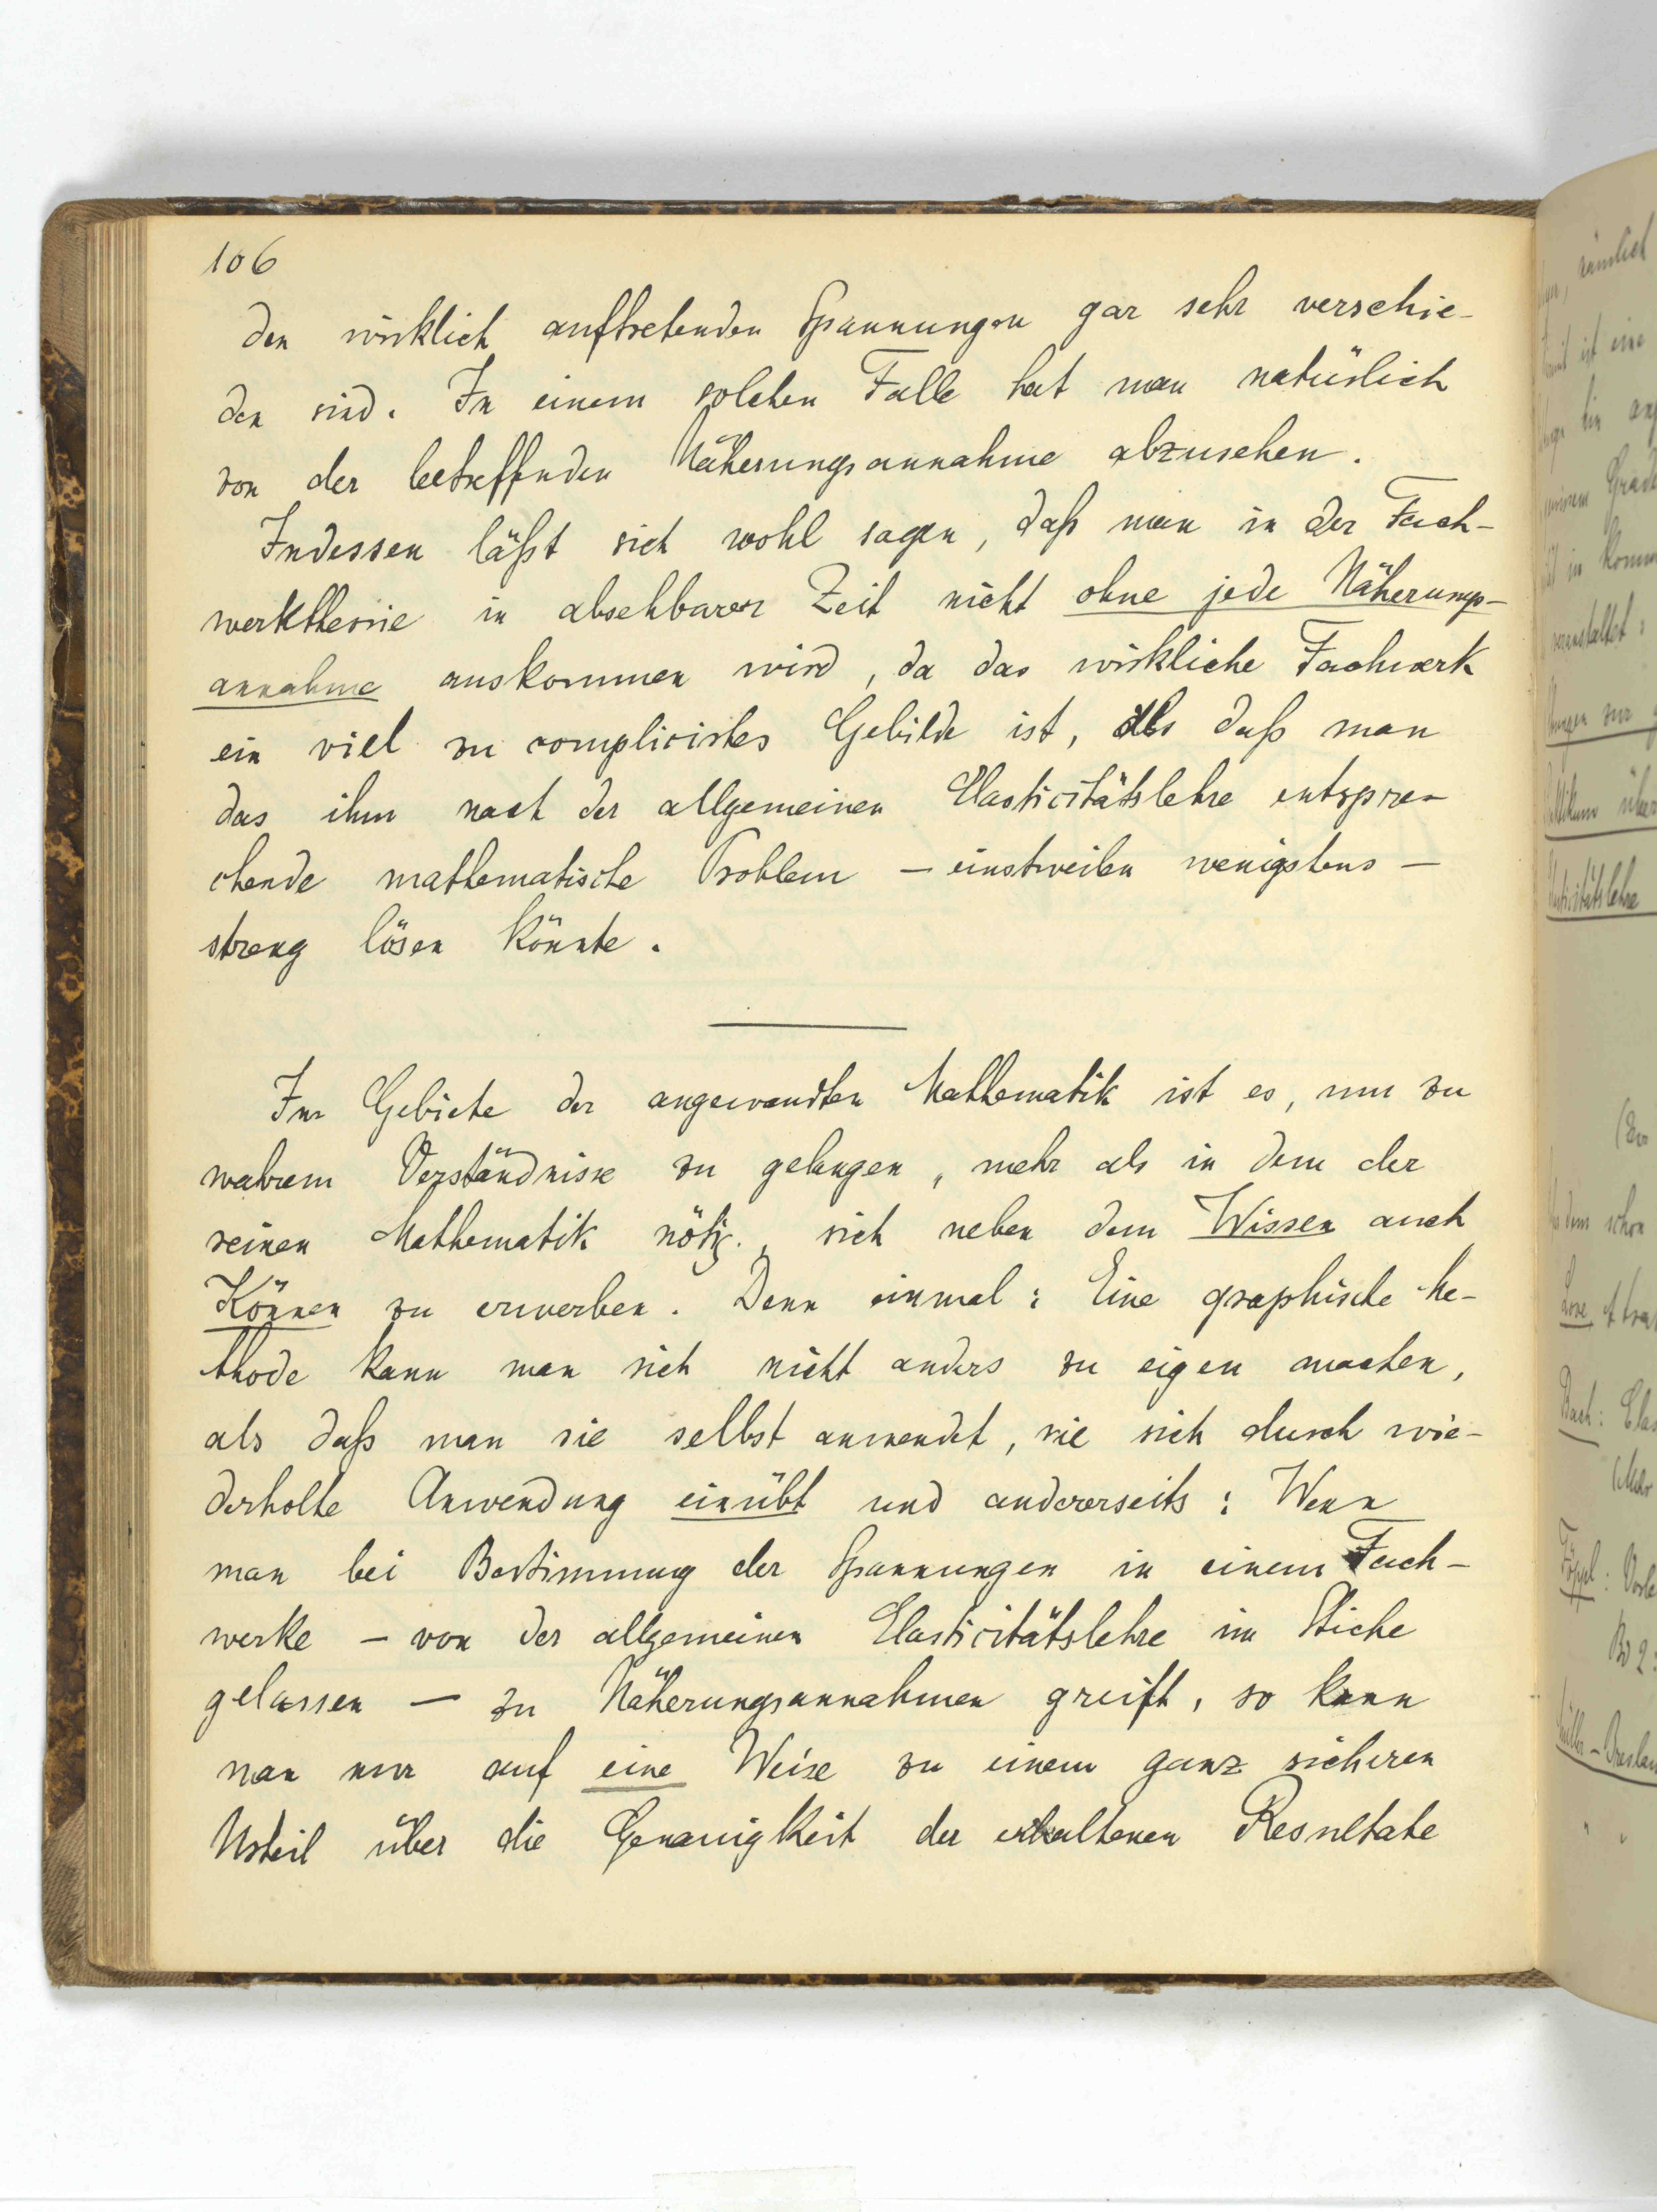 106
den wirklich auftretenden Spannungen gar sehr verschie-
den sind. In einem solchen Falle hat man natürlich
von der betreffenden Näherungsannahme abzusehen.
Indessen läßt sich wohl sagen, daß man in der Fach-
werktheorie in absehbarer Zeit nicht ohne jede Näherungs-
annahme auskommen wird, da das wirkliche Fachwerk
ein viel zu compliciertes Gebilde ist, als daß man
das ihm nach der allgemeinen Elasticitätslehre entspre-
chende mathematische Problem – einstweilen wenigstens –
streng lösen könnte.
Im Gebiete der angewandten Mathematik ist es, um zu
wahrem Verständnisse zu gelangen, mehr als in dem der
reinen Mathematik nötig, sich neben dem Wissen auch
Können zu erwerben. Denn einmal: Eine graphische Me-
thode kann man sich nicht anders zu eigen machen,
als daß man sie selbst anwendet, sie sich durch wie-
derholte Anwendung einübt und andererseits: Wenn
man bei Bestimmung der Spannungen in einem Fach-
werke – von der allgemeinen Elasticitätslehre im Stiche
gelassen – zu Näherungsannahmen greift, so kann
man nur auf eine Weise zu einem ganz sicheren
Urteil über die Genauigkeit der erhaltenen Resultate
nämlich
ist eine
Grade
in komm
veranstaltet:
über
Elasticitätslehre
dem schon
Love
Bach: Elas
Föppl: Vorle
Bd 2:
Müller-Breslau